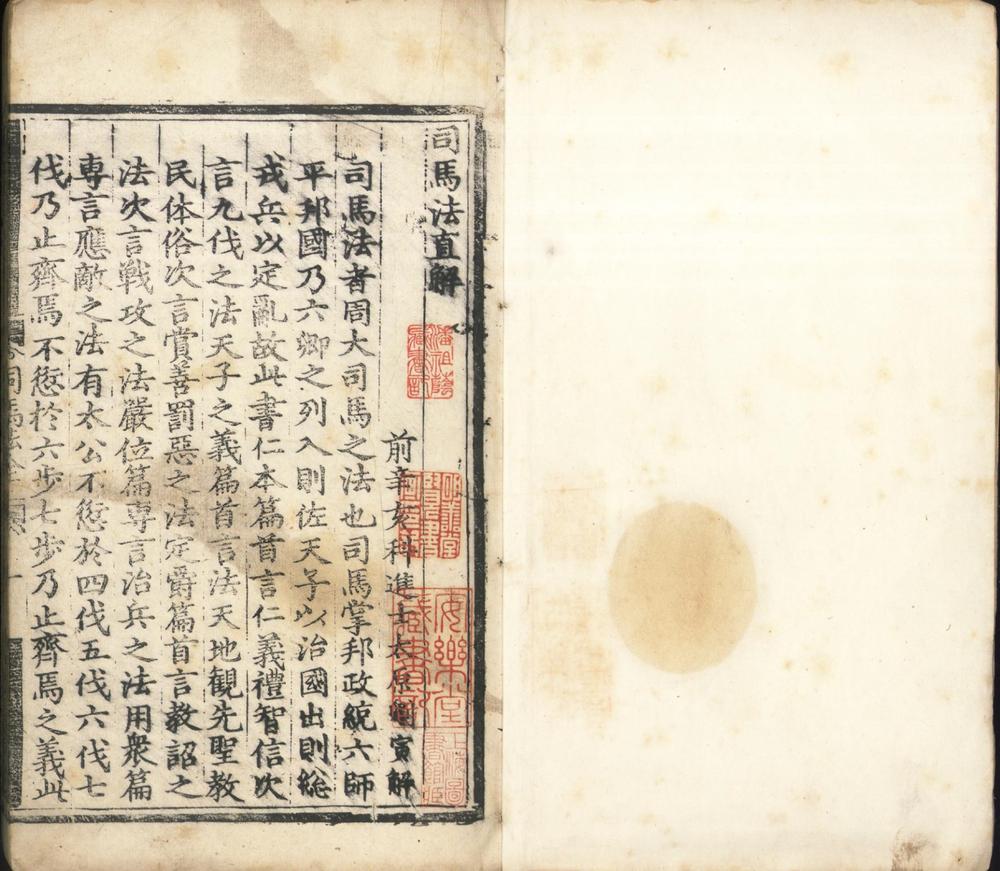 司馬法直解
前辛亥科進士太原劉寅解
司馬法者周大司馬之法也司馬掌邦政統六師
平邦國乃六卿之列入則佐天子以治國出則総
戎兵以定亂故此書仁本篇首言仁義禮智信次
言九伐之法天子之義篇首言法天地観先聖教
民体俗次言賞善罰惡之法定爵篇首言教詔之
法次言戰攻之法嚴位篇専言治兵之法用衆篇
専言應敵之法有太公不愆於四伐五伐六伐七
伐乃止齊焉不愆於六歩七歩乃止齊焉之義此
司馬法
一
潘祖蔭
藏書記
安樂堂
藏書記